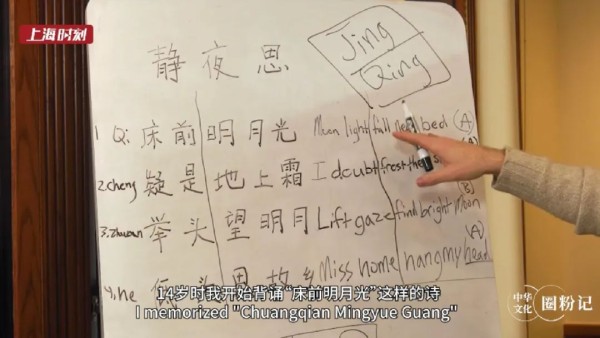 上海时刻
静夜思
Jing
Qing
1 Qi: 床前明月光 Moon light fall near bed (A)
2. cheng 疑是地上霜 I doubt frost
3. zhuan 举头望明月 Lift gaze find bright moon
4. he 头思故乡 Miss home hang my head
14岁时我开始背诵“床前明月光”这样的诗
I memorized "Chuangqian Mingyue Guang"
中华文化
圈粉记